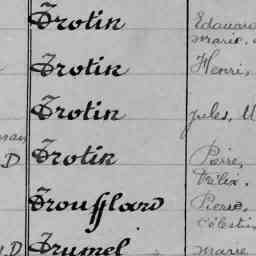 Trotin Edouard
Marie,
Trotin Henri,
Trotin Jules,
Trotin Pierre,
D Félix.
Troufflard Pierre,
Célestin
D Trumel Marie